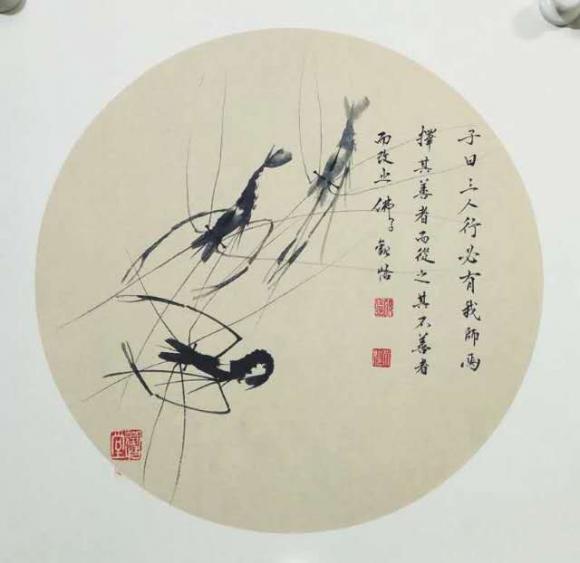 子曰三人行必有我師焉
擇其善者而從之其不善者
而改之佛子